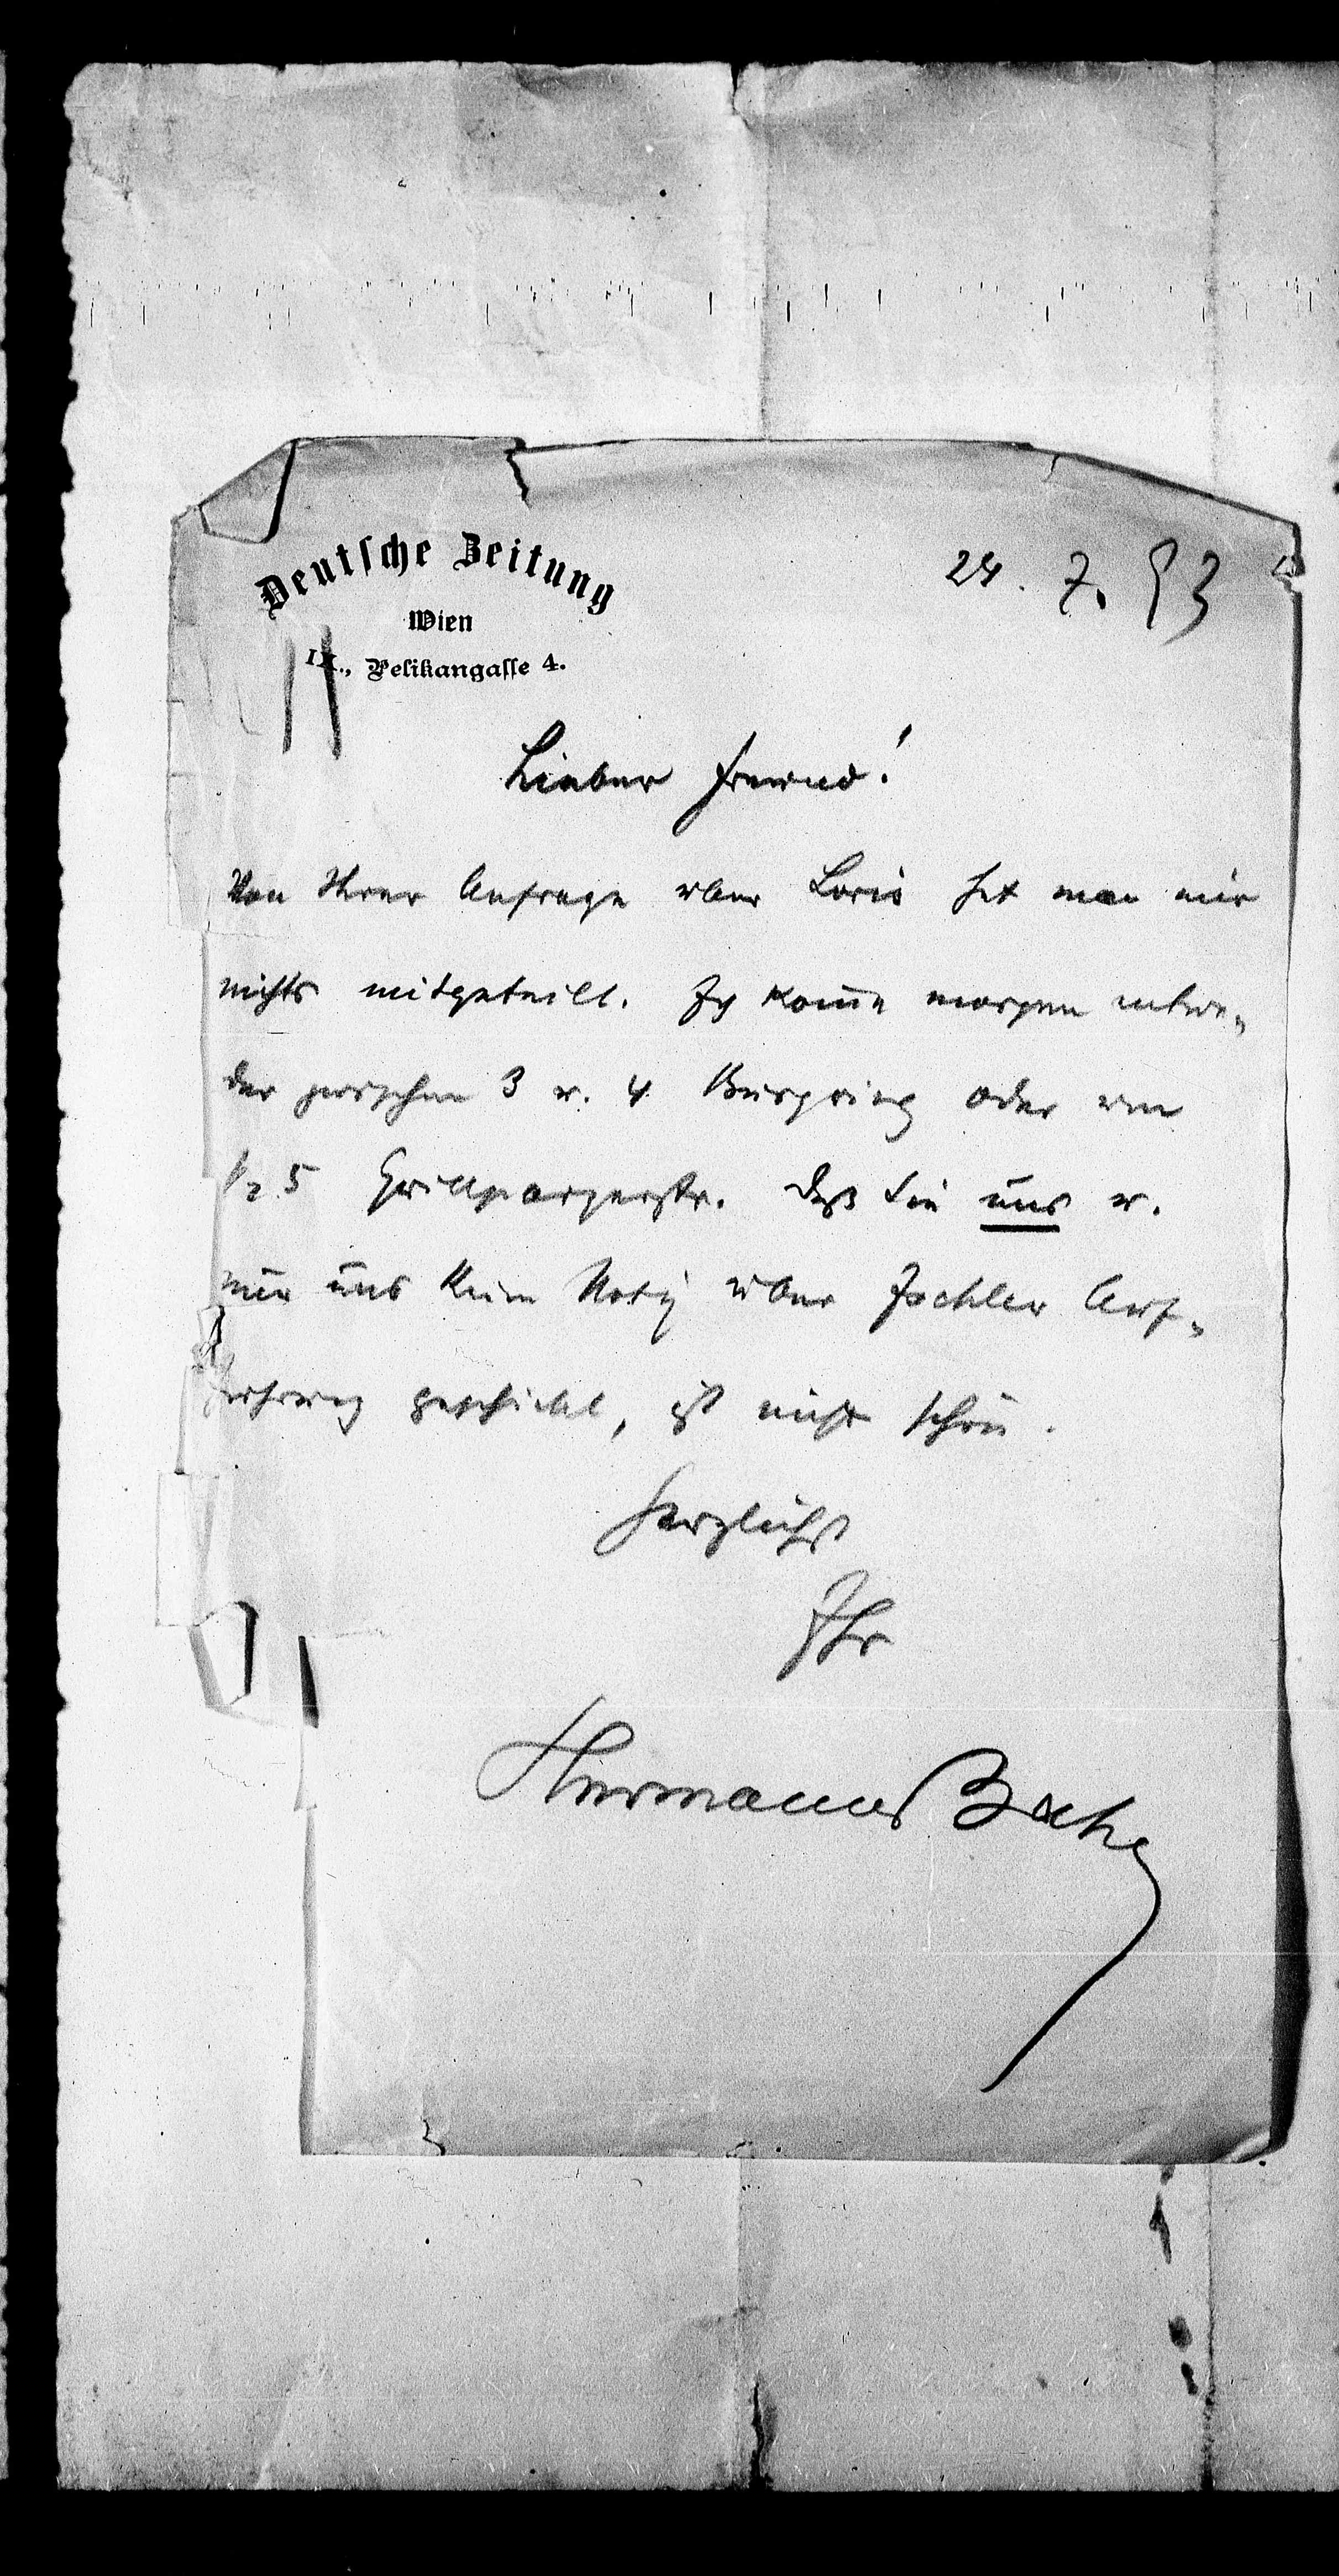 Deutsche Zeitung
Wien
IX., Pelikangasse 4.
24. 7. 93
Lieber Freund!
Von Ihrer Anfrage über Loris hat man mir
nichts mitgeteilt. Ich kom̅e morgen entwe-
der zwischen 3 u. 4 Burgring oder um
½ 5 Grillparzerstr. Daß Sie uns u.
nur uns keine Notiz über Ischler Auf-
führung geschickt, ist nicht schön.
Herzlichst
Ihr
Hermann Bahr